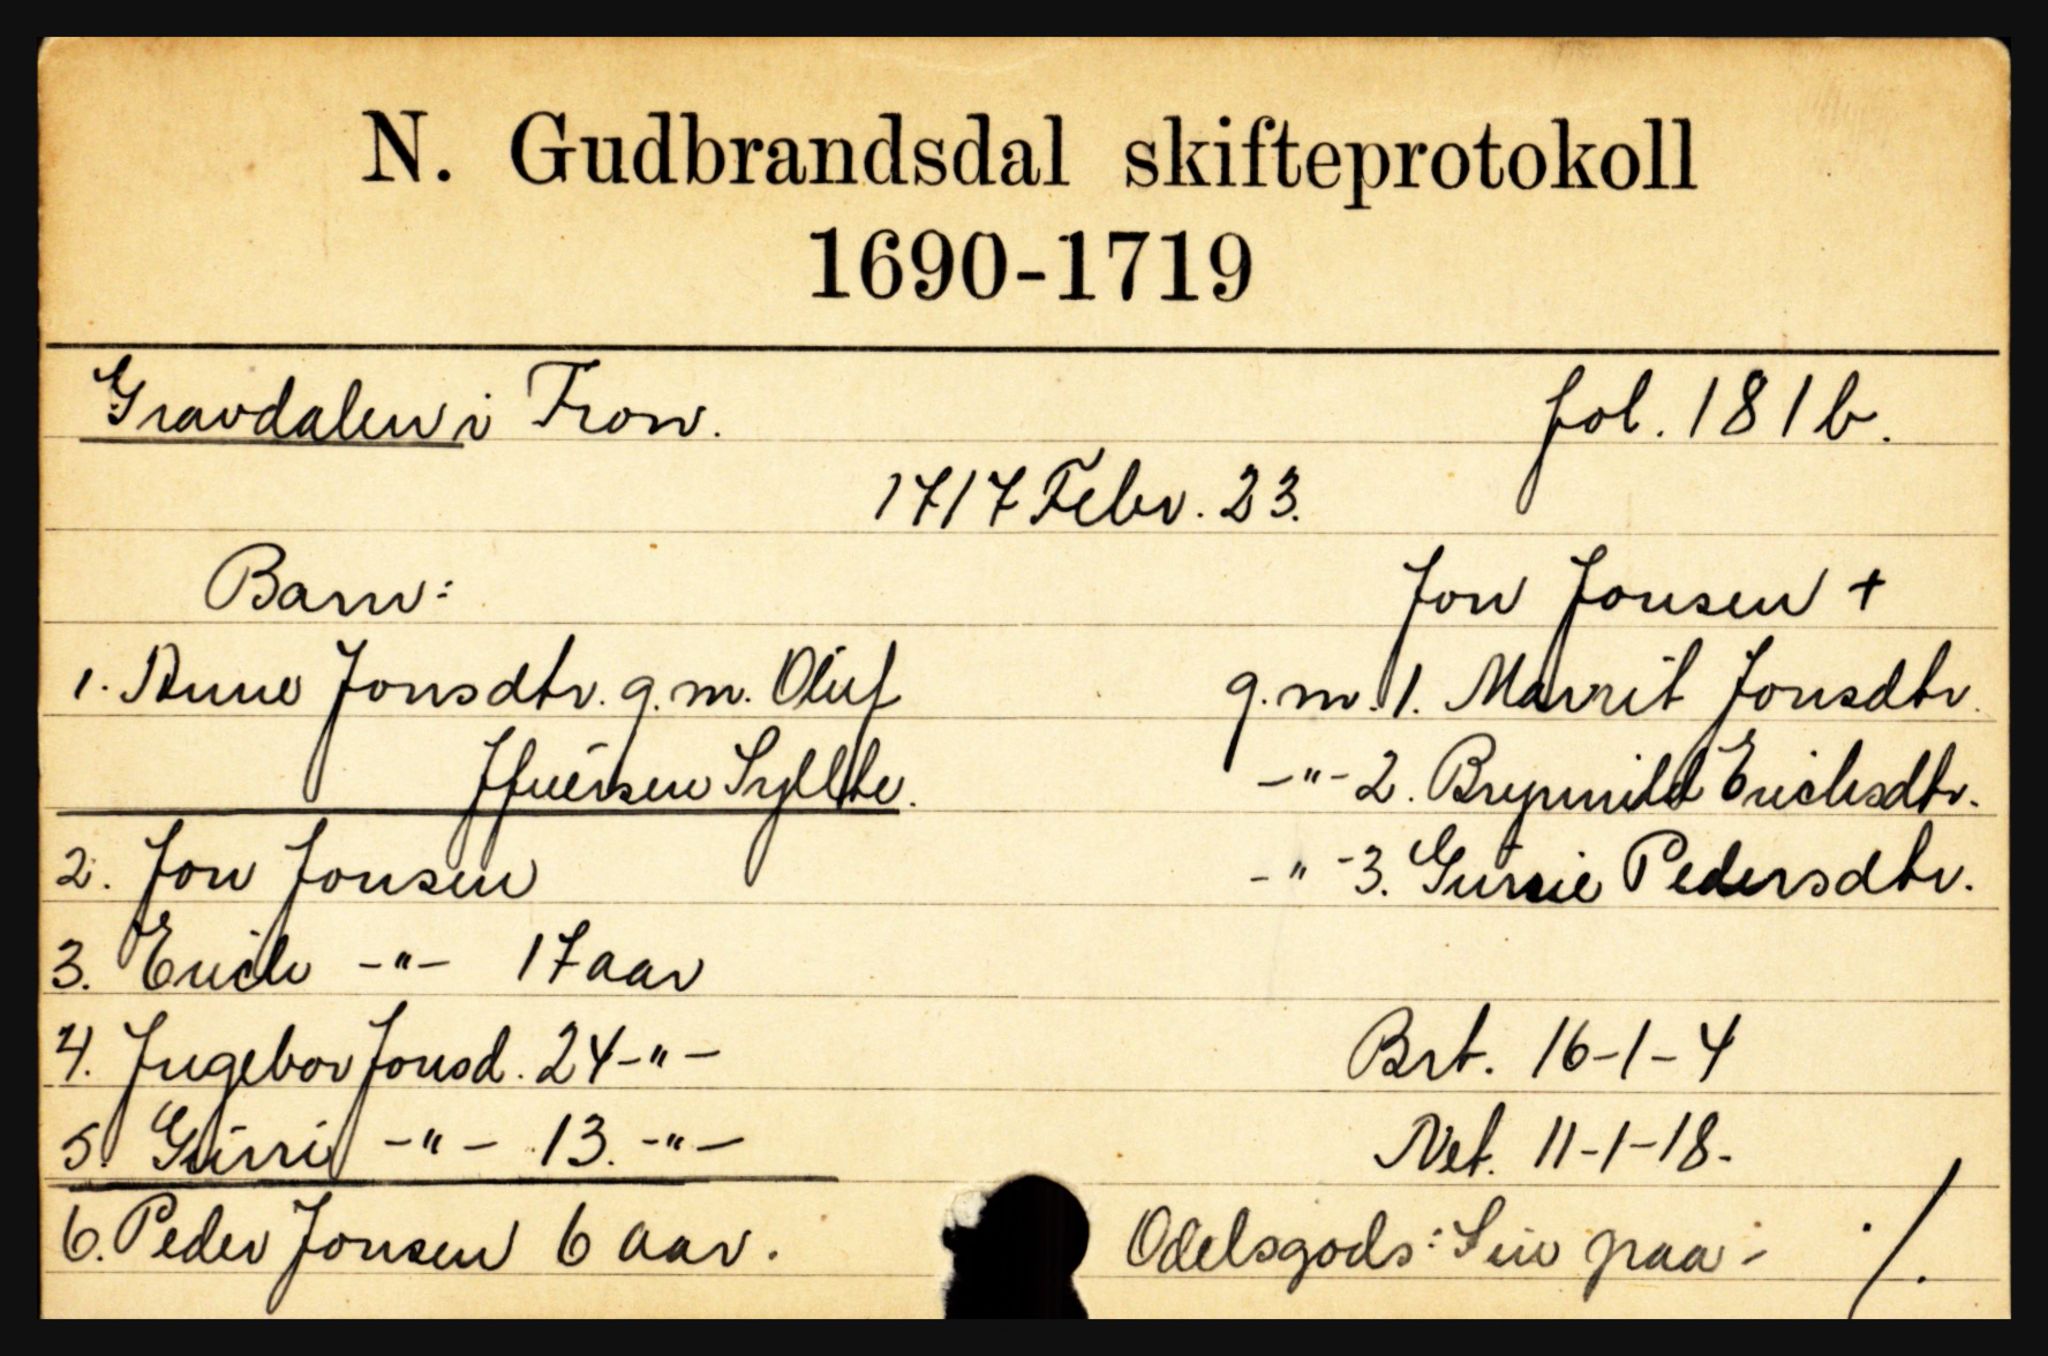 N. Gudbrandsdal skifteprotokoll
1690-1719
Gravdalen i Fron. fol. 181b.
1717 Febr. 23.
Barn: Jon Jonsen +
1. Anne Jonsdtr. g.m. Oluf g.m. 1. Marrit Jonsdtr.
Ifuersen Syllte. -"- 2. Brynnild Erichsdtr.
2. Jon Jonsen -"- 3. Gurrie Pedersdtr.
3. Erich -"- 17 aar
4. Ingebor Jonsd. 24 -"- Brt. 16-1-4
5. Gurri -"- 13. -"- Net. 11-1-18.
6. Peder Jonsen 6 aar. Odelsgods: paa- ./.